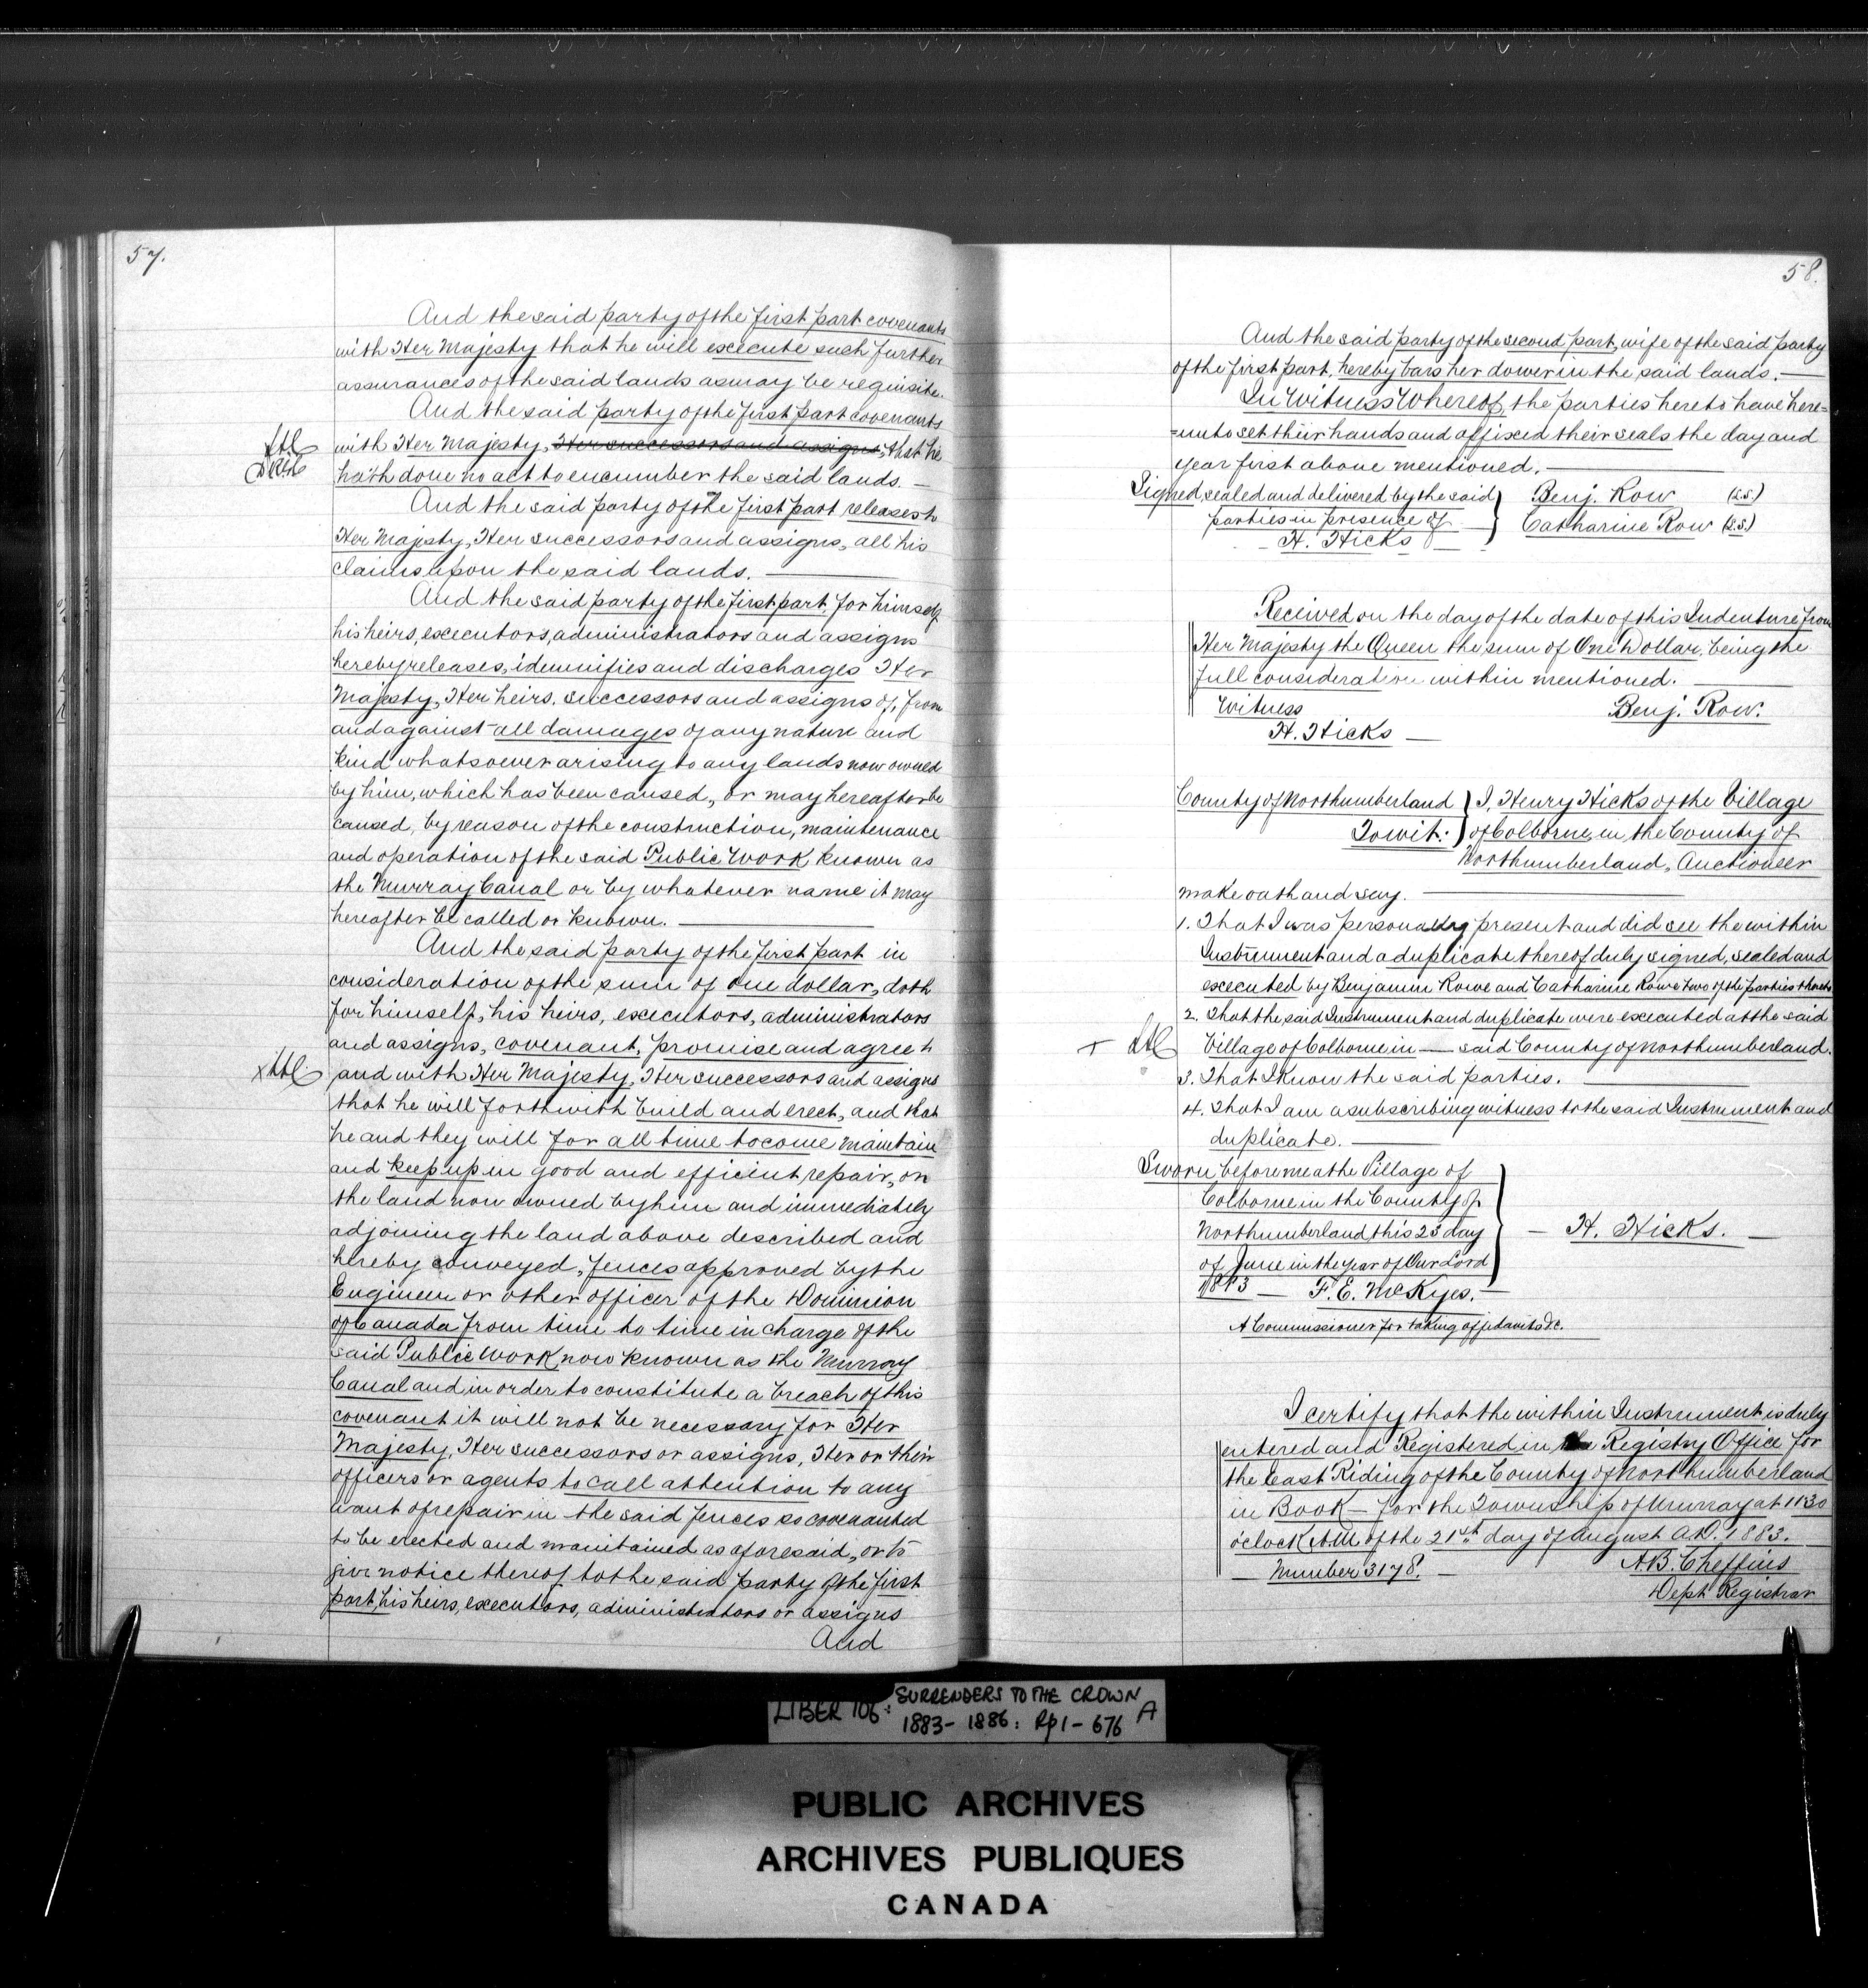 57.
And the said party of the first part covenants
with Her Majesty that he will execute such further
assurances of the said lands as may be requisite.
And the said party of the first part covenants
with Her Majesty, Her successors and assigns, that he
hath done no act to encumber the said lands. —
And the said party of the first part releases to
Her Majesty, Her successors and assigns, all his
claims upon the said lands. —
And the said party of the first part, for himself
his heirs, executors, administrators and assigns
hereby releases, idemnifies and discharges Her
Majesty, Her heirs, successors and assigns of, from
and against all damages of any nature and
kind whatsoever arising to any lands now owned
by him, which has been caused, or may hereafter be
caused, by reason of the construction, maintenance
and operation of the said Public Work, known as
the Murray Canal or by whatever name it may
hereafter be called or known. —
And the said party of the first part in
consideration of the sum of one dollar, doth
for himself, his heirs, executors, administrators
and assigns, covenant, promise and agree to
and with Her Majesty, Her successors and assigns
that he will forthwith build and erect, and that
he and they will for all time to come maintain
and keep up in good and efficient repair, on
the land now owned by him and immediately
adjoining the land above described and
hereby conveyed, fences approved by the
Engineer or other officer of the Dominion
of Canada from time to time in charge of the
said Public Work, now known as the Murray
Canal and in order to constitute a breach of this
covenant it will not be necessary for Her
Majesty, Her successors or assigns, Her or their
officers or agents to call attention to any
want of repair in the said fences so covenanted
to be erected and maintained as aforesaid, or to
give notice thereof to the said party of the first
part, his heirs, executors, administrators or assigns
And
58.
And the said party of the second part, wife of the said party
of the first part, hereby bars her dower in the said lands. —
In Witness Whereof, the parties hereto have here=
=unto set their hands and affixed their seals the day and
year first above mentioned. —
Signed, sealed and delivered by the said } Benj. Row (L.S.)
parties in presence of } Catharine Row (L.S.)
— H. Hicks —
Received on the day of the date of this Indenture from
Her Majesty the Queen the sum of One Dollar, being the
full consideration within mentioned. —
Witness Benj. Row.
H. Hicks —
County of Northumberland } I, Henry Hicks of the Village
To wit: } of Colborne, in the County of
Northumberland, Auctioneer
make oath and say. —
1. That I was personally present and did see the within
Instrument and a duplicate thereof duly signed, sealed and
executed by Benjamin Rowe and Catharine Rowe two of the parties thereto
2. That the said Instrument and duplicate were executed at the said
Village of Colborne in — said County of Northumberland.
3. That I know the said parties. —
4. That I am a subscribing witness to the said Instrument and
duplicate. —
Sworn before me at the Village of
Colborne in the County of
Northumberland, this 23 day — H. Hicks. —
of June in the year of Our Lord
1883 — F. E. McKyes. —
A Commissioner for taking affidavits &c.
I certify that the within Instrument is duly
entered and Registered in the Registry Office for
the East Riding of the County of Northumberland
in Book — for the Township of Murray at 11 30
o'clock A.M of the 21st day of August A.D. 1883.
— Number 3178. — A. B. Cheffins
Dept Registrar
LIBER 106: SURRENDERS TO THE CROWN A
1883-1886: Pp 1-676
PUBLIC ARCHIVES
ARCHIVES PUBLIQUES
CANADA